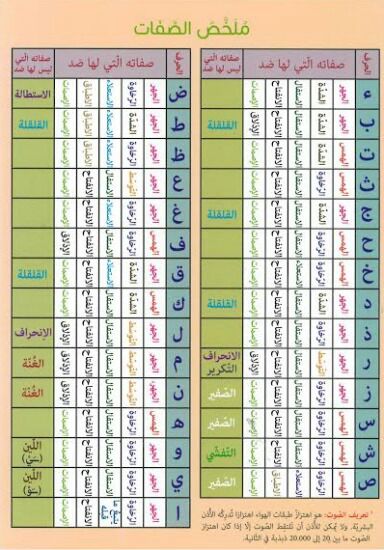 مُلَخَّصُ الصِّفَات
الحرف صفاته الّتي لها ضد صفاته الّتي ليس لها ضد
ء الجهر الشدّة الاستفال الانفتاح الإصمات
ب الجهر الشدّة الاستفال الانفتاح الإذلاق القلقلة
ت الهمس الشدّة الاستفال الانفتاح الإصمات
ث الهمس الرّخاوة الاستفال الانفتاح الإصمات
ج الجهر الشدّة الاستفال الانفتاح الإصمات القلقلة
ح الهمس الرّخاوة الاستفال الانفتاح الإصمات
خ الهمس الرّخاوة الاستعلاء الانفتاح الإصمات
د الجهر الشدّة الاستفال الانفتاح الإصمات القلقلة
ذ الجهر الرّخاوة الاستفال الانفتاح الإصمات
ر الجهر التوسّط الاستفال الانفتاح الإذلاق الانحراف التكرير
ز الجهر الرّخاوة الاستفال الانفتاح الإصمات الصّفير
س الهمس الرّخاوة الاستفال الانفتاح الإصمات الصّفير
ش الهمس الرّخاوة الاستفال الانفتاح الإصمات التّفشّي
ص الهمس الرّخاوة الاستعلاء الإصمات الصّفير
الحرف صفاته الّتي لها ضد صفاته الّتي ليس لها ضد
ض الجهر الرّخاوة الاستعلاء الاطباق الإصمات الاستطالة
ط الجهر الشدّة الاستعلاء الاطباق الإصمات القلقلة
ظ الجهر الرّخاوة الاستعلاء الاطباق الإصمات
ع الجهر التوسّط الاستفال الانفتاح الإصمات
غ الجهر الرّخاوة الاستعلاء الانفتاح الإصمات
ف الهمس الرّخاوة الاستفال الانفتاح الإذلاق
ق الجهر الشدّة الاستعلاء الانفتاح الإصمات القلقلة
ك الهمس الشدّة الاستفال الانفتاح الإصمات
ل الجهر التوسّط الاستفال الانفتاح الإذلاق الإنحراف
م الجهر التوسّط الاستفال الانفتاح الإذلاق الغُنّة
ن الجهر التوسّط الاستفال الانفتاح الإذلاق الغُنّة
ه الهمس الرّخاوة الاستفال الانفتاح الإصمات
و الجهر الرّخاوة الاستفال الانفتاح الإصمات اللّين
ي الجهر الرّخاوة الاستفال الانفتاح الإصمات اللّين
ا الجهر الرّخاوة يتبع ما قبله الانفتاح الإصمات
* تعريف الصّوت: هو اهتزازُ طبقات الهواء اهتزازًا تُدركُه الأُذن
البشريّة. ولا يُمكن للأُذن أن تلتقط الصّوت إلّا إذا كان اهتزاز
الصّوت ما بين 20 إلى 20,000 ذبذبة في الثّانية.